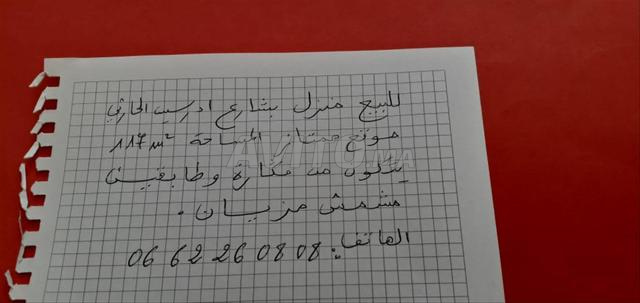 للبيع منزل بشارع ادريس الحارثي
موقع ممتاز المساحة 117m²
يتكون من مكازة وطابقين
مشمش مزيان.
الهاتف: 06 62 26 08 08